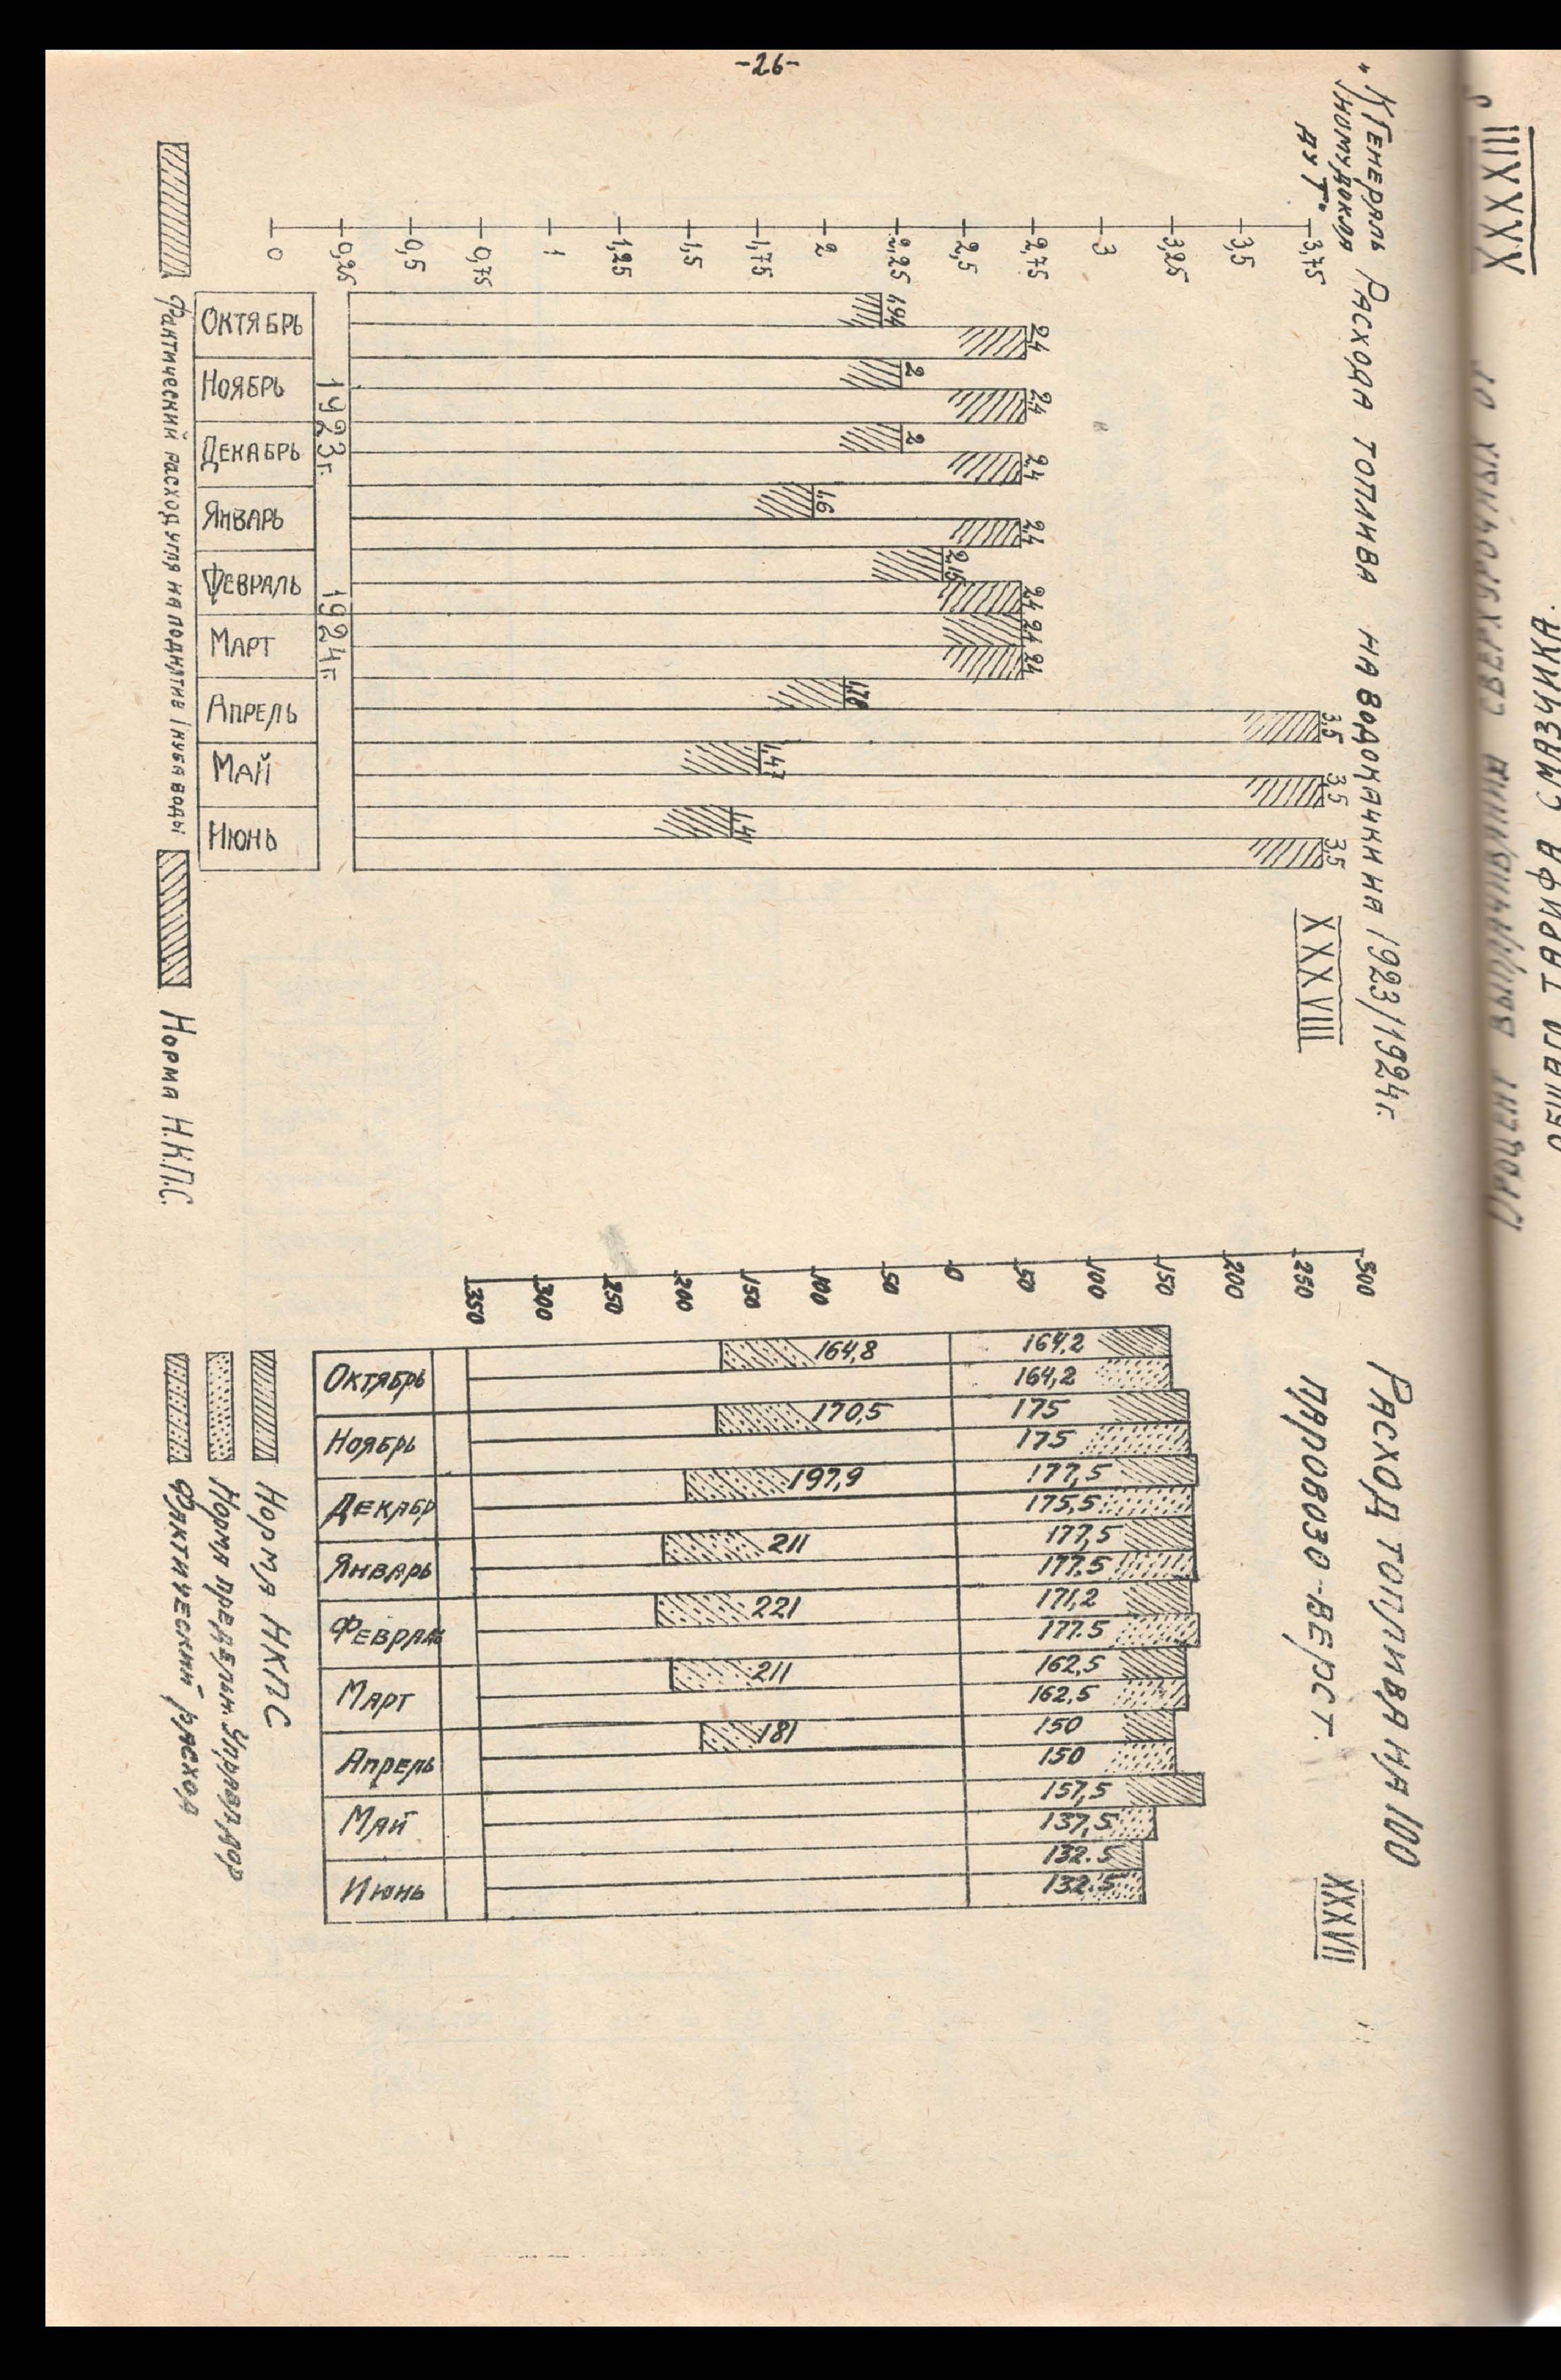 -26-
XXXVIII
Расхода топлива на водокачки на 1923/1924г.
3,75
3,5
3,25
3
2,75
2,5
2,25
2
1,75
1,5
1,25
1
0,75
0,5
0,25
0
1,94 2,4
2 2,4
2 2,4
1,6 2,4
2,15 2,4
2,4 2,4
1,78 3,5
1,47 3,5
1,41 3,5
1923г. 1924г
Октябрь
Ноябрь
Декабрь
Январь
Февраль
Март
Апрель
Май
Июнь
Фактический расход угля на поднятие 1 куба воды
Норма Н.К.П.С.
Расход топлива на 100
паровозо-верст.
XXXVII
300
250
200
150
100
50
0
50
100
150
200
250
300
350
164,2 164,2
175 175
177,5 175,5
177,5 177.5
171,2 177.5
162,5 162,5
150 150
157,5 137,5
132.5 132.5
164,8
170,5
197,9
211
221
211
181
Октябрь
Ноябрь
Декабр
Январь
Февраль
Март
Апрель
Май
Июнь
Норма НКПС
Норма предельн. Управл. дор
Фактический расход
XXXXIII
Процент выплачивания сверхурочных от
общаго тарифа смазчика.